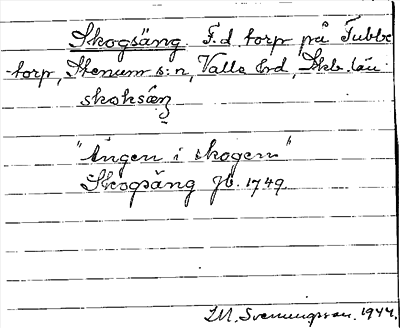 Skogsäng F.d. torp på Tubbe
torp, Stenum s:n, Valle hd, Skb. län.
skoksæŋ
"Ängen i skogen"
Skogsäng Jb. 1749.
Svenungsson. 1944.